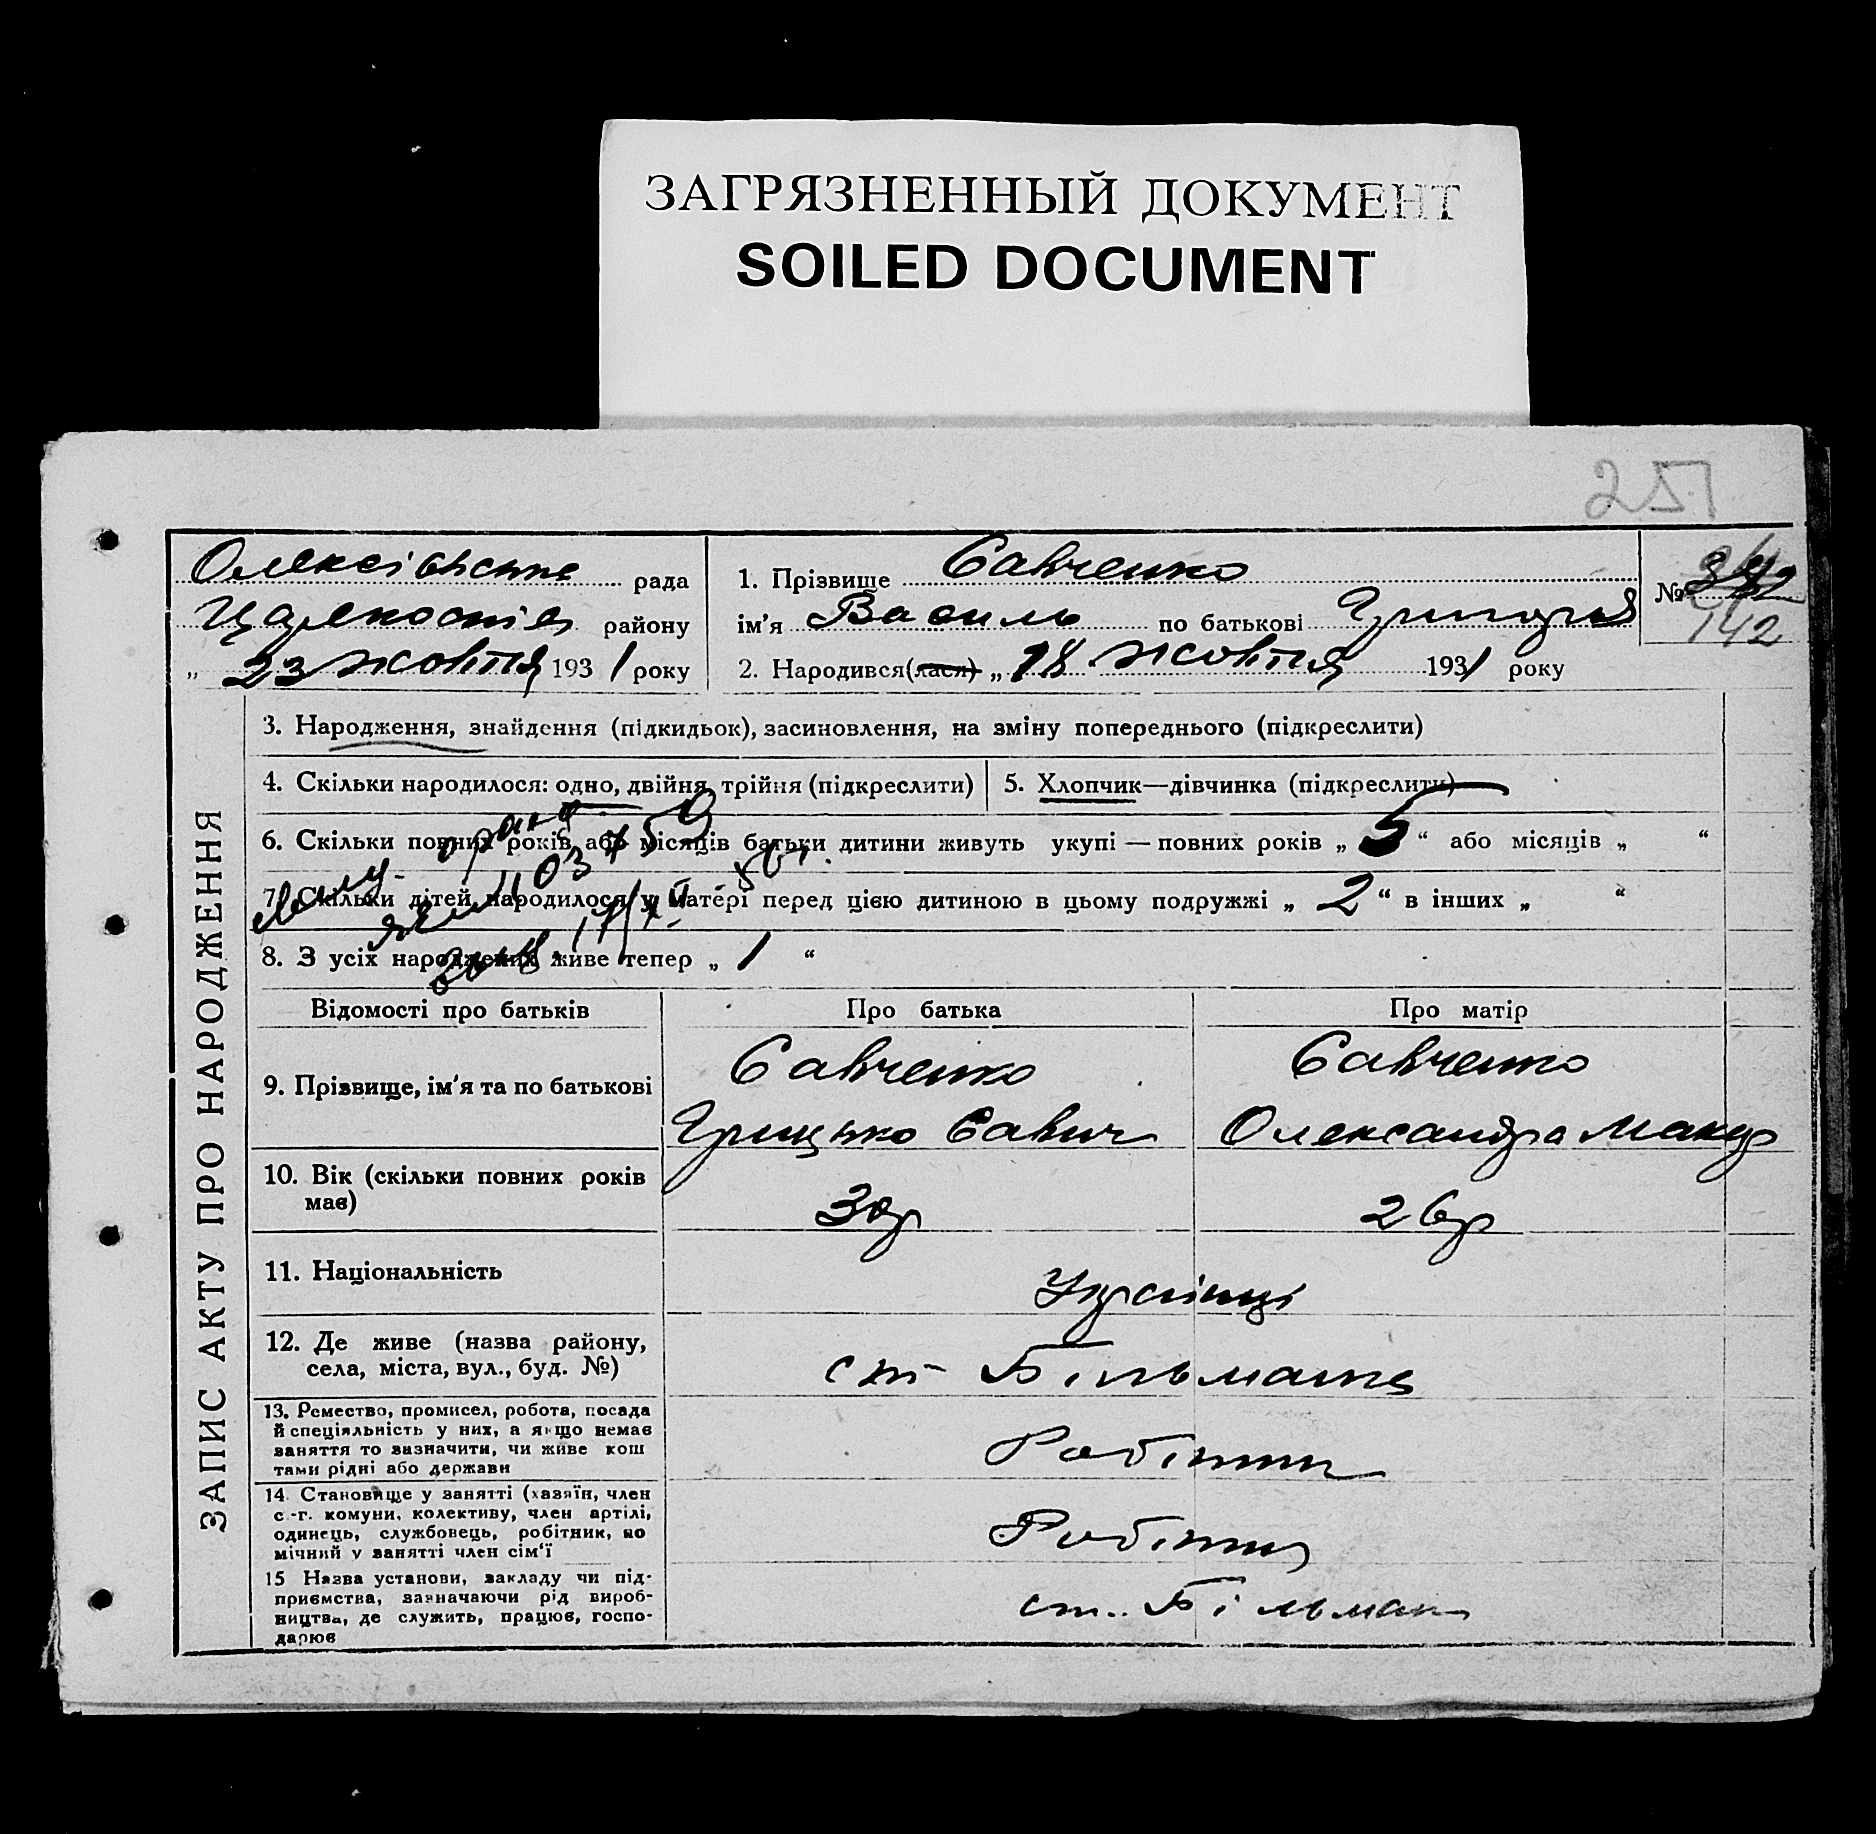 ЗАГРЯЗНЕННЫЙ ДОКУМЕНТ
SOILED DOCUMENT
257
Олексіївська рада
району
„ 23 жовтня 1931 року
1. Прізвище Савченко
ім'я Василь по батькові Григорів
2. Народився(лася) „ 18 жовтня 1931 року
№
142
ЗАПИС АКТУ ПРО НАРОДЖЕННЯ
3. Народження, знайдення (підкидьок), засиновлення, на зміну попереднього (підкреслити)
4. Скільки народилося: одно, двійня, трійня (підкреслити)
5. Хлопчик—дівчинка (підкреслити)
6. Скільки повних років або місяців батьки дитини живуть укупі — повних років „ 5 “ або місяців „ “
7. Скільки дітей народилося у матері перед цією дитиною в цьому подружжі „ 2 “ в інших „ “
8. З усіх народжених живе тепер „ 1 “
Відомості про батьків
Про батька
Про матір
9. Прізвище, ім'я та по батькові
Савченко
Грицько Савич
Савченко
Олександра Макар
10. Вік (скільки повних років
має)
30р
26р
11. Національність
Українці
12. Де живе (назва району,
села, міста, вул., буд. №)
ст Більманка
13. Ремество, промисел, робота, посада
й спеціяльність у них, а якщо немає
заняття то зазначити, чи живе кош
тами рідні або держави
Робітник
14. Становище у занятті (хазяїн, член
с.-г. комуни, колективу, член артілі,
одинець, службовець, робітник, по
мічний у занятті член сім'ї
Робітник
15 Назва установи, закладу чи під-
приємства, зазначаючи рід вироб-
ництва, де служить, працює, госпо-
дарює
ст. Більман